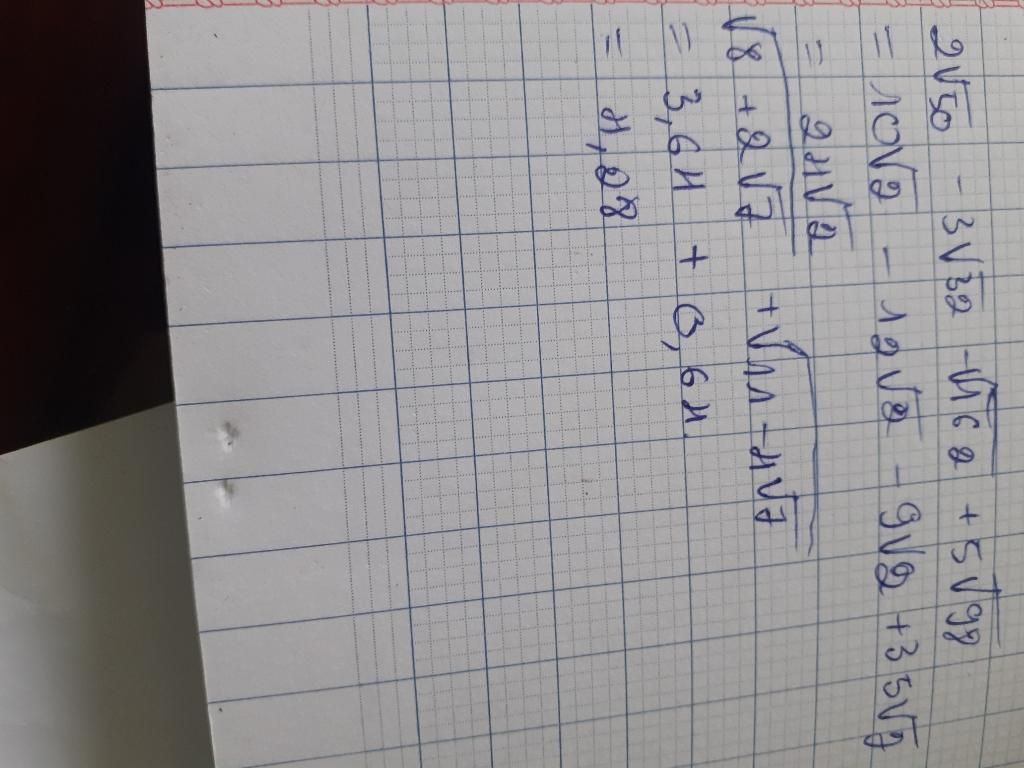 2√50 - 3√32 - √162 + 5√98
= 10√2 - 12√2 - 9√2 + 35√2
= 24√2
√8 + 2√7 + √11 - 4√7
= 3,64 + 0,64
= 4,28